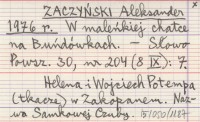 ZACZYŃSKI Aleksander
1976 r. W maleńkiej chatce
na Bundówkach. – Słowo
Powsz. 30, nr 204 (8 IX): 7.
Helena i Wojciech Potempa
(tkacze) w Zakopanem. Naz-
wa Samkowej Czuby.